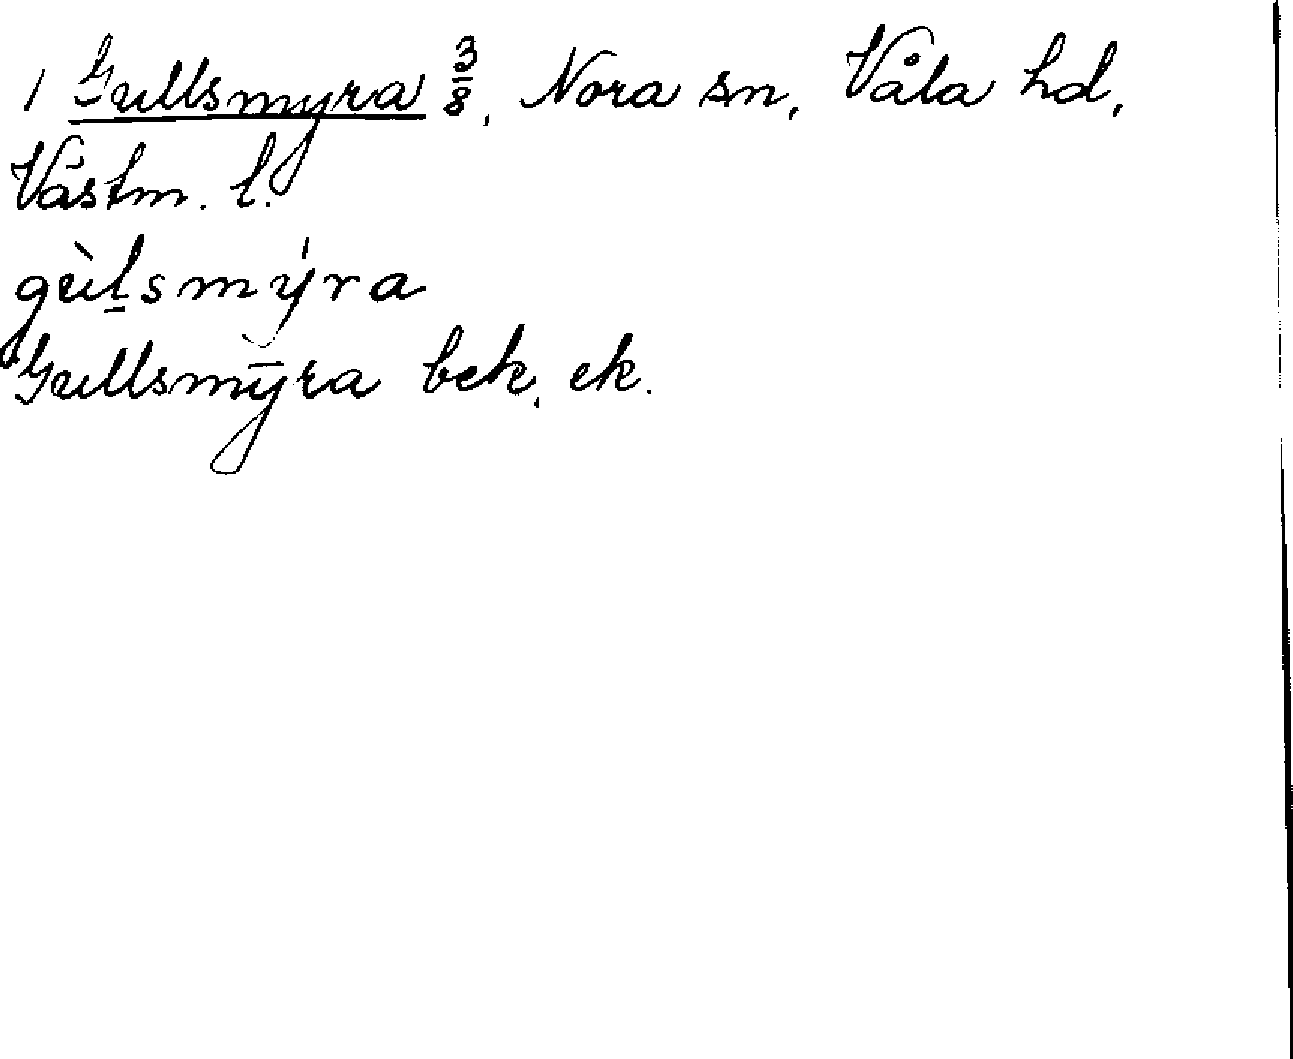 1 Gullsmyra 3/8, Nora sn, Våla hd,
Västm. l.
gùl̠smýra
Gullsmȳra bek. ek.